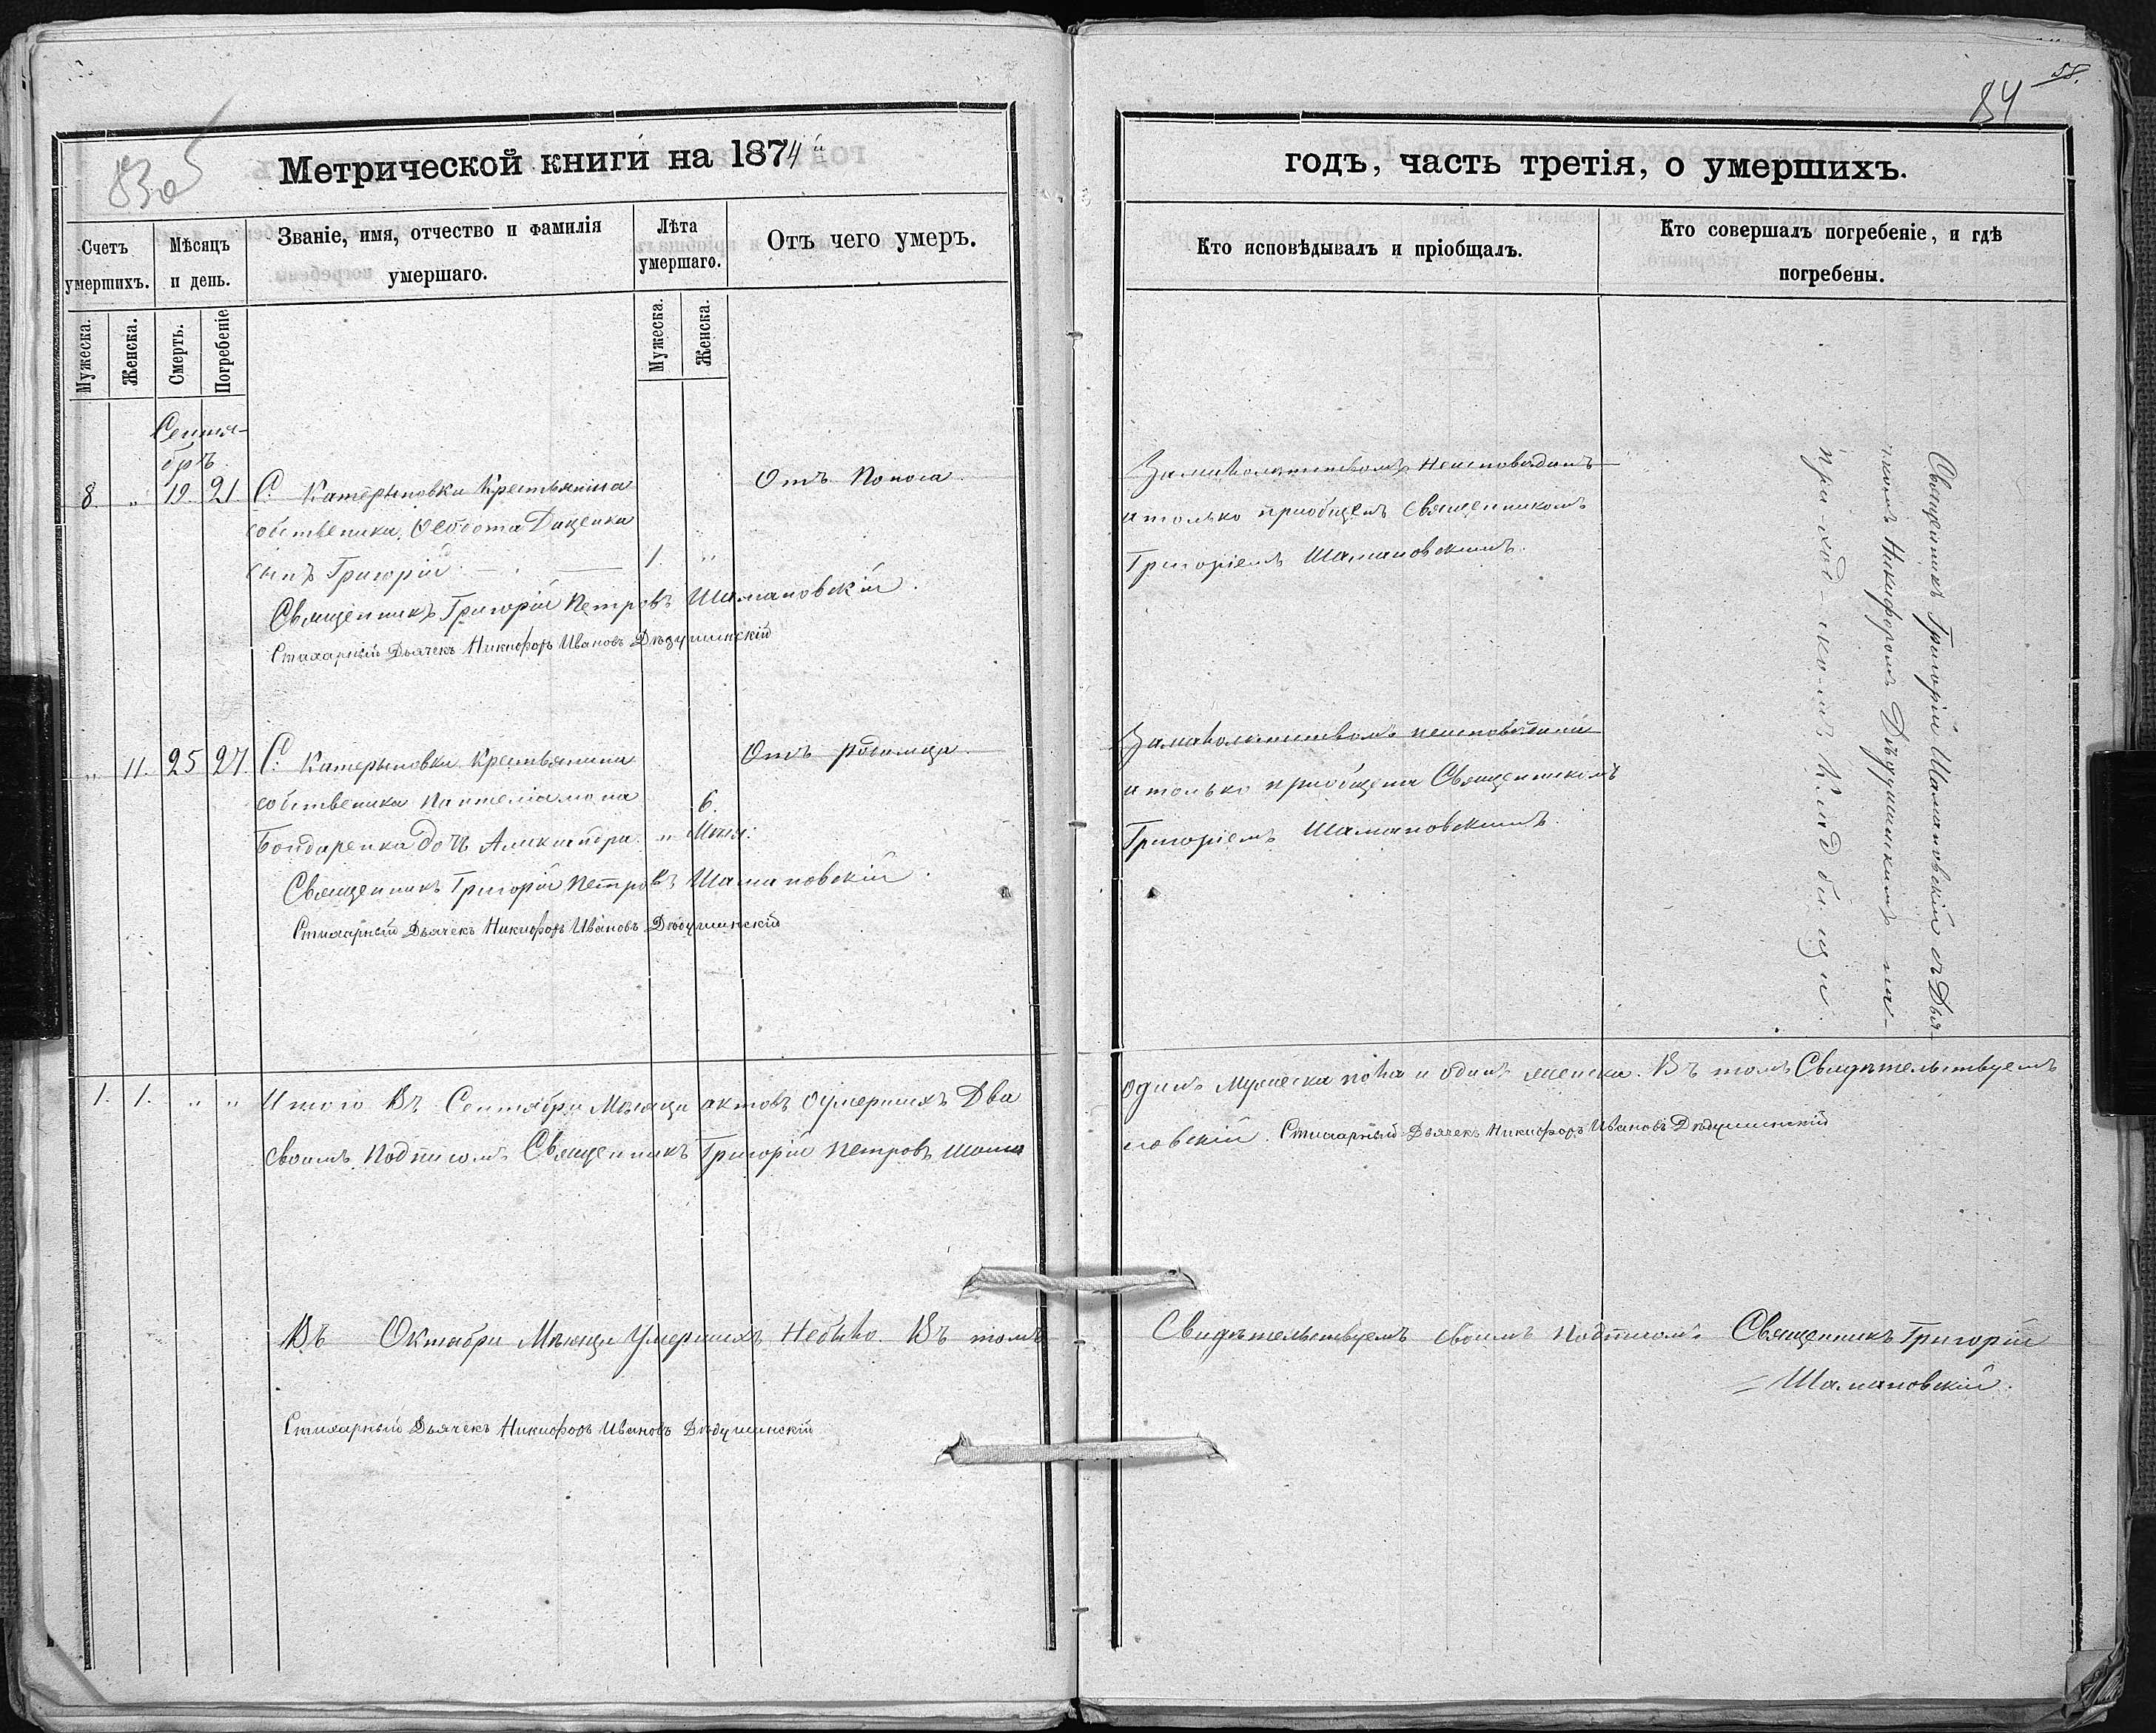 83об
Метрической книги на 1874й
Счетъ умершихъ.
Мѣсяцъ и день.
Званіе, имя, отчество и фамилія умершаго.
Лѣта умершаго.
Отъ чего умеръ.
Мужеска.
Женска.
Смерть.
Погребеніе
Мужеска.
Женска.
Сентя-
брь
8. " 19. 21. С. Катерыновки Крестьянина Отъ Поноса
собственика Ѳеодота Даценка
сынъ Григорій 1. "
Священникъ Григорій Петровъ Шамановскій.
Стихарный Дьячекъ Никифоръ Ивановъ Дѣдушинскій
" 11. 25 27. С. Катерыновки Крестьянина Отъ родимца
собственика Пантелiамона 6.
Бондаренка дочь Александра " Мѣся:
Священникъ Григорій Петровъ Шамановскій.
Стихарный Дьячекъ Никифоръ Ивановъ Дѣдушинскій
1. 1. " " Итого Въ Сентябри Мѣсяцѣ актовъ оумершихъ Два
своимъ Подписомъ Священникъ Григорій Петровъ Шама
Въ Октябри Мѣсяцѣ Умершихъ Небыло. Въ томъ
Стихарный Дьячекъ Никифоръ Ивановъ Дѣдушинскій
58.
84
годъ, часть третія, о умершихъ.
Кто исповѣдывалъ и пріобщалъ.
Кто совершалъ погребеніе, и гдѣ погребены.
Замалолѣтствомъ Неисповѣданъ
а только приобщенъ Священникомъ
Григоріемъ Шамановскимъ.
Замалолѣтствомъ неисповѣдана
а только приобщена Священникомъ
Григоріемъ Шамановскимъ.
Священникъ Григорій Шамановскій съ Дья-
чкомъ Никифоромъ Дѣдушинскимъ на
приход-скомъ Кладбищи.
одинъ Мужеска пола и одинъ женска. Въ томъ Свидѣтельствуемъ
новскій. Стихарный Дьячекъ Никифоръ Ивановъ Дѣдушинскій
Свидѣтельствуемъ своимъ Подписомъ Священникъ Григорій
Шамановскій.